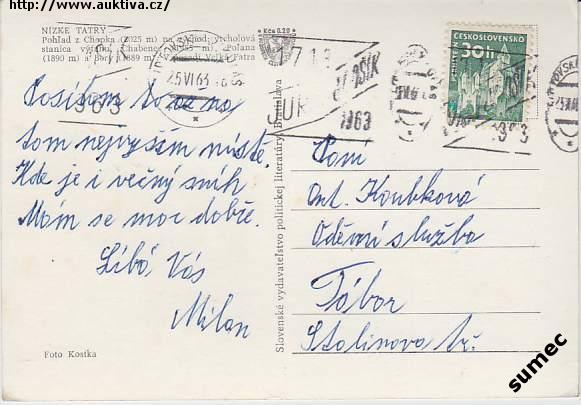 http://www.auktiva.cz
NÍZKE TATRY
Pohľad z Chopku (2025 m) na západ: vrcholová
stanica výťahu, Chabenec (1955 m), Poľana
(1890 m) a Bory (1889 m). V pozadí Veľká Fatra
Kčs 0,20
25.VI 63
1713
JUR
1963
1963
ČESKOSLOVENSKO
30 h
Posílám to až na
tom nejvyším místě.
Kde je i věčný sníh
Mám se moc dobře.
Líbá Vás
Milan
Foto Kostka
Slovenské vydavateľstvo politickej literatúry, Bratislava
Paní
Ant. Koubková
Oděvní služba
Tábor
Stalinova tř.
sumec